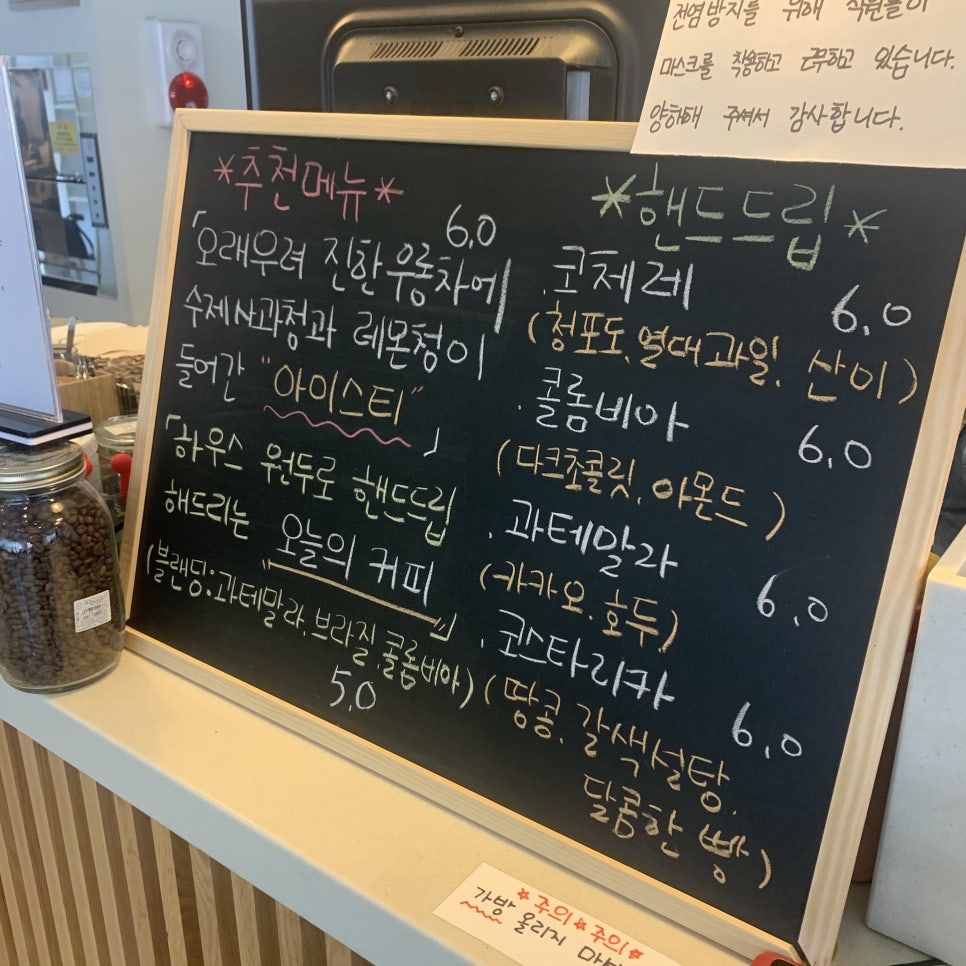 전염방지를 위해 직원들이
마스크를 착용하고 근무하고 있습니다.
양해해 주셔서 감사합니다.
*추천메뉴*
6.0
「오래우려 진한 우롱차에
수제사과청과 레몬청이
들어간 "아이스티"」
「하우스 원두로 핸드드립
해드리는 "오늘의 커피"」
(블랜딩:과테말라.브라질.콜롬비아)
5.0
*핸드드립*
.코체레 6.0
(청포도.열대과일. 산미)
.콜롬비아 6.0
(다크초콜릿.아몬드)
.과테말라 6.0
(카카오.호두)
.코스타리카 6.0
(땅콩. 갈색설탕.
달콤한 빵)
*주의*주의*
가방 올리지